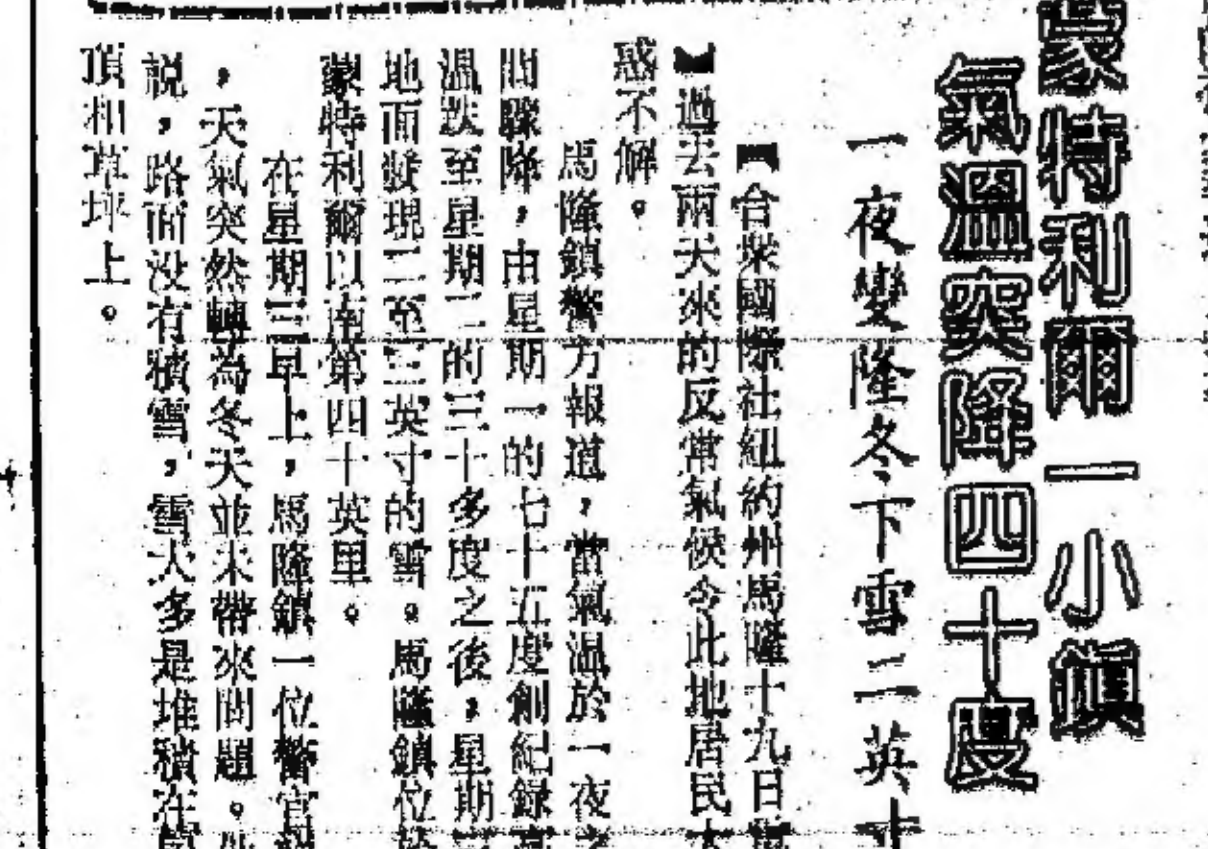 蒙特利爾一小鎮
氣溫突降四十度
一夜變隆冬下雪二英寸
【合衆國際社紐約州馬隆十九日電
】過去兩天來的反常氣候令此地居民大
惑不解。
馬隆鎮警方報道，當氣温於一夜之
間驟降，由星期一的七十五度創紀録高
温跌至星期二的三十多度之後，星期三
地面發現二至三英寸的雪。馬隆鎮位於
蒙特利爾以南第四十英里。
在星期三早上，馬隆鎮一位警官説
，天氣突然轉為冬天並未帶來問題。他
説，路面没有積雪，雪大多是堆積在房
頂和草坪上。